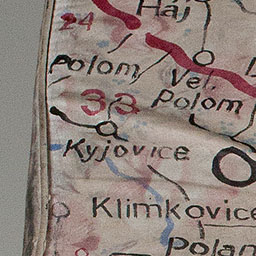 Háj
24
Polom
Vel.
Polom
33
Kyjovice
Klimkovice
Polan